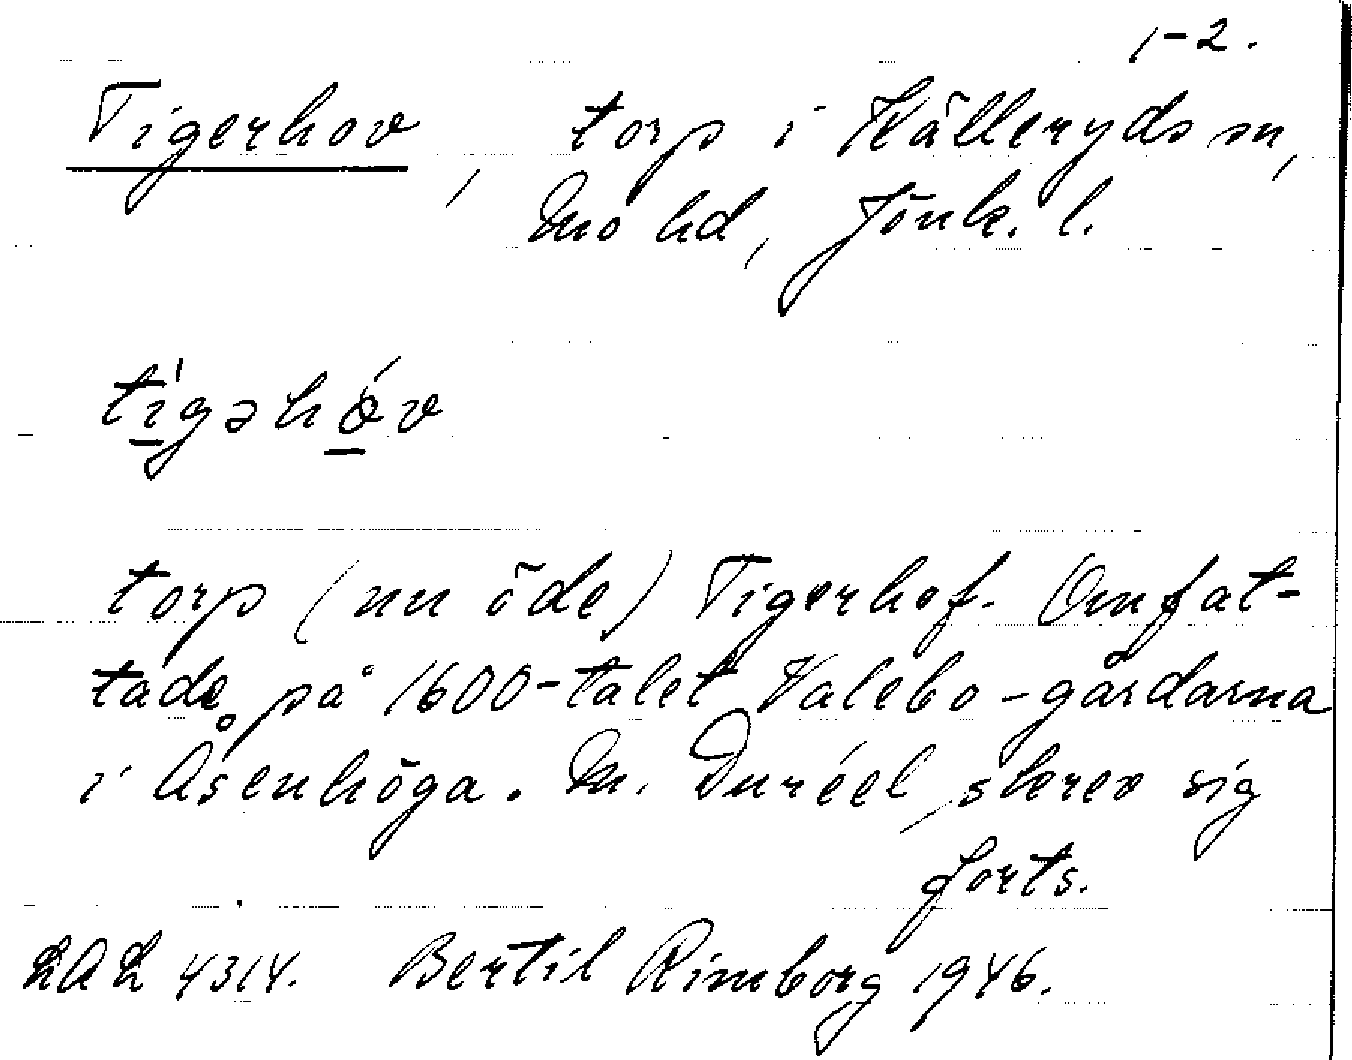 1-2.
Tigerhov, torp i Källeryds sn,
Mo hd, Jönk. l.
tigəhóv
torp (nu öde) Tigerhof. Omfat-
tade på 1600-talet Valebo-gårdarna
i Åsenhöga. M. Duréel, skrev sig
forts.
LAL 4314. Bertil Rimborg 1946.